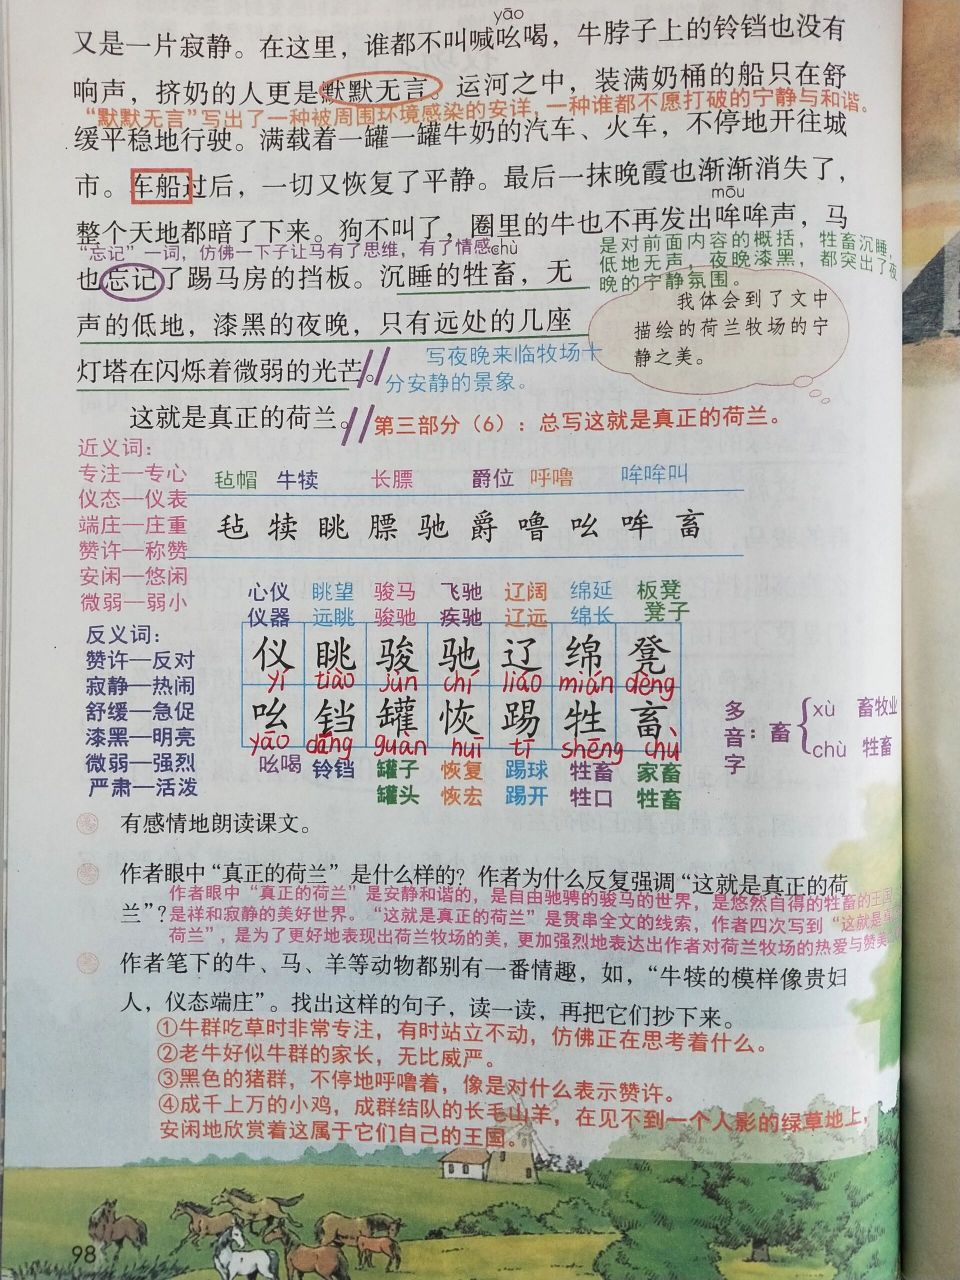 yāo
又是一片寂静。在这里，谁都不叫喊吆喝，牛脖子上的铃铛也没有
响声，挤奶的人更是默默无言。运河之中，装满奶桶的船只在舒
“默默无言”写出了一种被周围环境感染的安详，一种谁都不愿打破的宁静与和谐。
缓平稳地行驶。满载着一罐一罐牛奶的汽车、火车，不停地开往城
市。车船过后，一切又恢复了平静。最后一抹晚霞也渐渐消失了，
mōu
整个天地都暗了下来。狗不叫了，圈里的牛也不再发出哞哞声，马
“忘记”一词，仿佛一下子让马有了思维，有了情感。
chù
是对前面内容的概括，牲畜沉睡，
低地无声，夜晚漆黑，都突出了夜
晚的宁静氛围。
也忘记了踢马房的挡板。沉睡的牲畜，无
声的低地，漆黑的夜晚，只有远处的几座
灯塔在闪烁着微弱的光芒。
我体会到了文中
描绘的荷兰牧场的宁
静之美。
写夜晚来临牧场十
分安静的景象。
这就是真正的荷兰。
第三部分（6）：总写这就是真正的荷兰。
近义词：
专注—专心
仪态—仪表
端庄—庄重
赞许—称赞
安闲—悠闲
微弱—弱小
毡帽 牛犊 长膘 爵位 呼噜 哞哞叫
毡 犊 眺 膘 驰 爵 噜 吆 哞 畜
心仪 眺望 骏马 飞驰 辽阔 绵延 板凳
仪器 远眺 骏驰 疾驰 辽远 绵长 凳子
反义词：
赞许—反对
寂静—热闹
舒缓—急促
漆黑—明亮
微弱—强烈
严肃—活泼
仪 眺 骏 驰 辽 绵 凳
yí tiào jùn chí liáo mián dèng
吆 铛 罐 恢 踢 牲 畜
yāo dāng guàn huī tī shēng chù
吆喝 铃铛 罐子 恢复 踢球 牲畜 家畜
罐头 恢宏 踢开 牲口 牲畜
多音字：畜
xù 畜牧业
chù 牲畜
有感情地朗读课文。
作者眼中“真正的荷兰”是什么样的？作者为什么反复强调“这就是真正的荷
作者眼中“真正的荷兰”是安静和谐的，是自由驰骋的骏马的世界，是悠然自得的牲畜的王国，
兰”？
是祥和寂静的美好世界。“这就是真正的荷兰”是贯串全文的线索，作者四次写到“这就是真
荷兰”，是为了更好地表现出荷兰牧场的美，更加强烈地表达出作者对荷兰牧场的热爱与赞美
作者笔下的牛、马、羊等动物都别有一番情趣，如，“牛犊的模样像贵妇
人，仪态端庄”。找出这样的句子，读一读，再把它们抄下来。
①牛群吃草时非常专注，有时站立不动，仿佛正在思考着什么。
②老牛好似牛群的家长，无比威严。
③黑色的猪群，不停地呼噜着，像是对什么表示赞许。
④成千上万的小鸡，成群结队的长毛山羊，在见不到一个人影的绿草地上，
安闲地欣赏着这属于它们自己的王国。
98